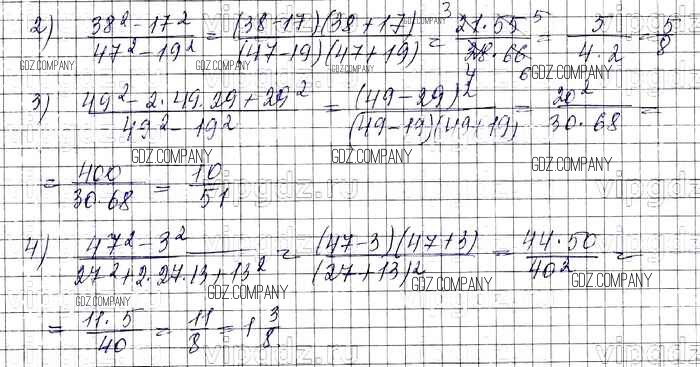 2) (38² - 17²)/(47² - 19²) = ((38-17)(38+17))/((47-19)(47+19)) = (21·55)/(28·66) = 5/(4·2) = 5/8
3) (49² - 2·49·29 + 29²)/(49² - 19²) = (49-29)²/((49-19)(49+19)) = 20²/(30·68) =
= 400/(30·68) = 10/51
4) (47² - 3²)/(27² + 2·27·13 + 13²) = ((47-3)(47+3))/(27+13)² = (44·50)/40² =
= (11·5)/40 = 11/8 = 1 3/8.
GDZ.COMPANY
vipgdz.ru